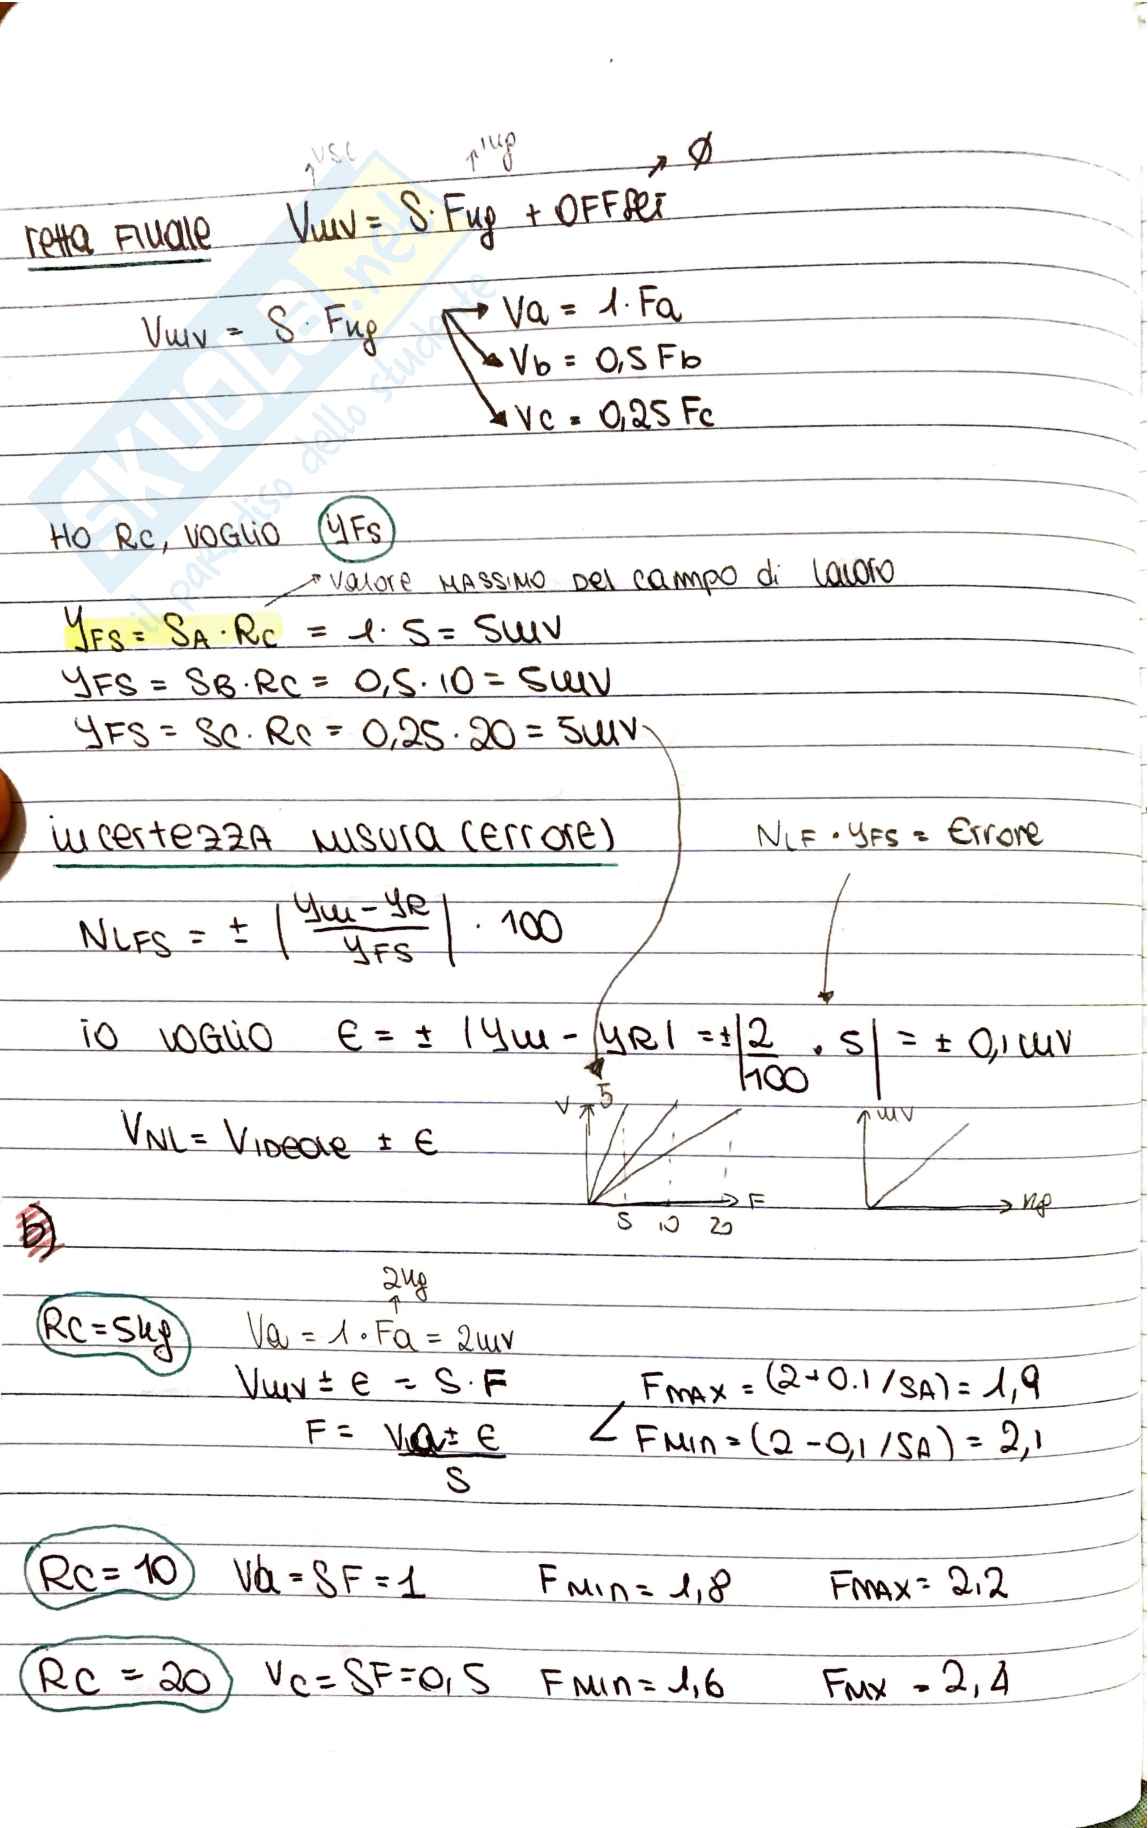 VSC ↑ ↑ kg → Ø
retta FINALE VmV = S · Fkg + OFFSET
VmV = S · Fkg → Va = 1 · Fa
Vb = 0,5 Fb
Vc = 0,25 Fc
SKUOLA.net
il paradiso dello studente
HO RC, VOGLIO YFS
→ valore MASSIMO DEL campo di lavoro
YFS = SA · RC = 1 · 5 = 5mV
YFS = SB · RC = 0,5 · 10 = 5mV
YFS = SC · RC = 0,25 · 20 = 5mV
incertezza misura (errore) NLF · YFS = Errore
NLFS = ± | (ym - yR) / yFS | · 100
io VOGLIO ϵ = ± |ym - yR| = ± | 2/100 · 5 | = ± 0,1 mV
VNL = VIDEALE ± ϵ
V 5 F 5 10 20
mV kg
b)
2kg
RC = 5kg Va = 1 · Fa = 2mV
VmV ± ϵ = S · F FMAX = (2+0.1 / SA) = 1,9
F = (Va ± ϵ) / S FMIN = (2-0,1 / SA) = 2,1
RC = 10 Va = SF = 1 FMIN = 1,8 FMAX = 2,2
RC = 20 Vc = SF = 0,5 FMIN = 1,6 FMX = 2,4